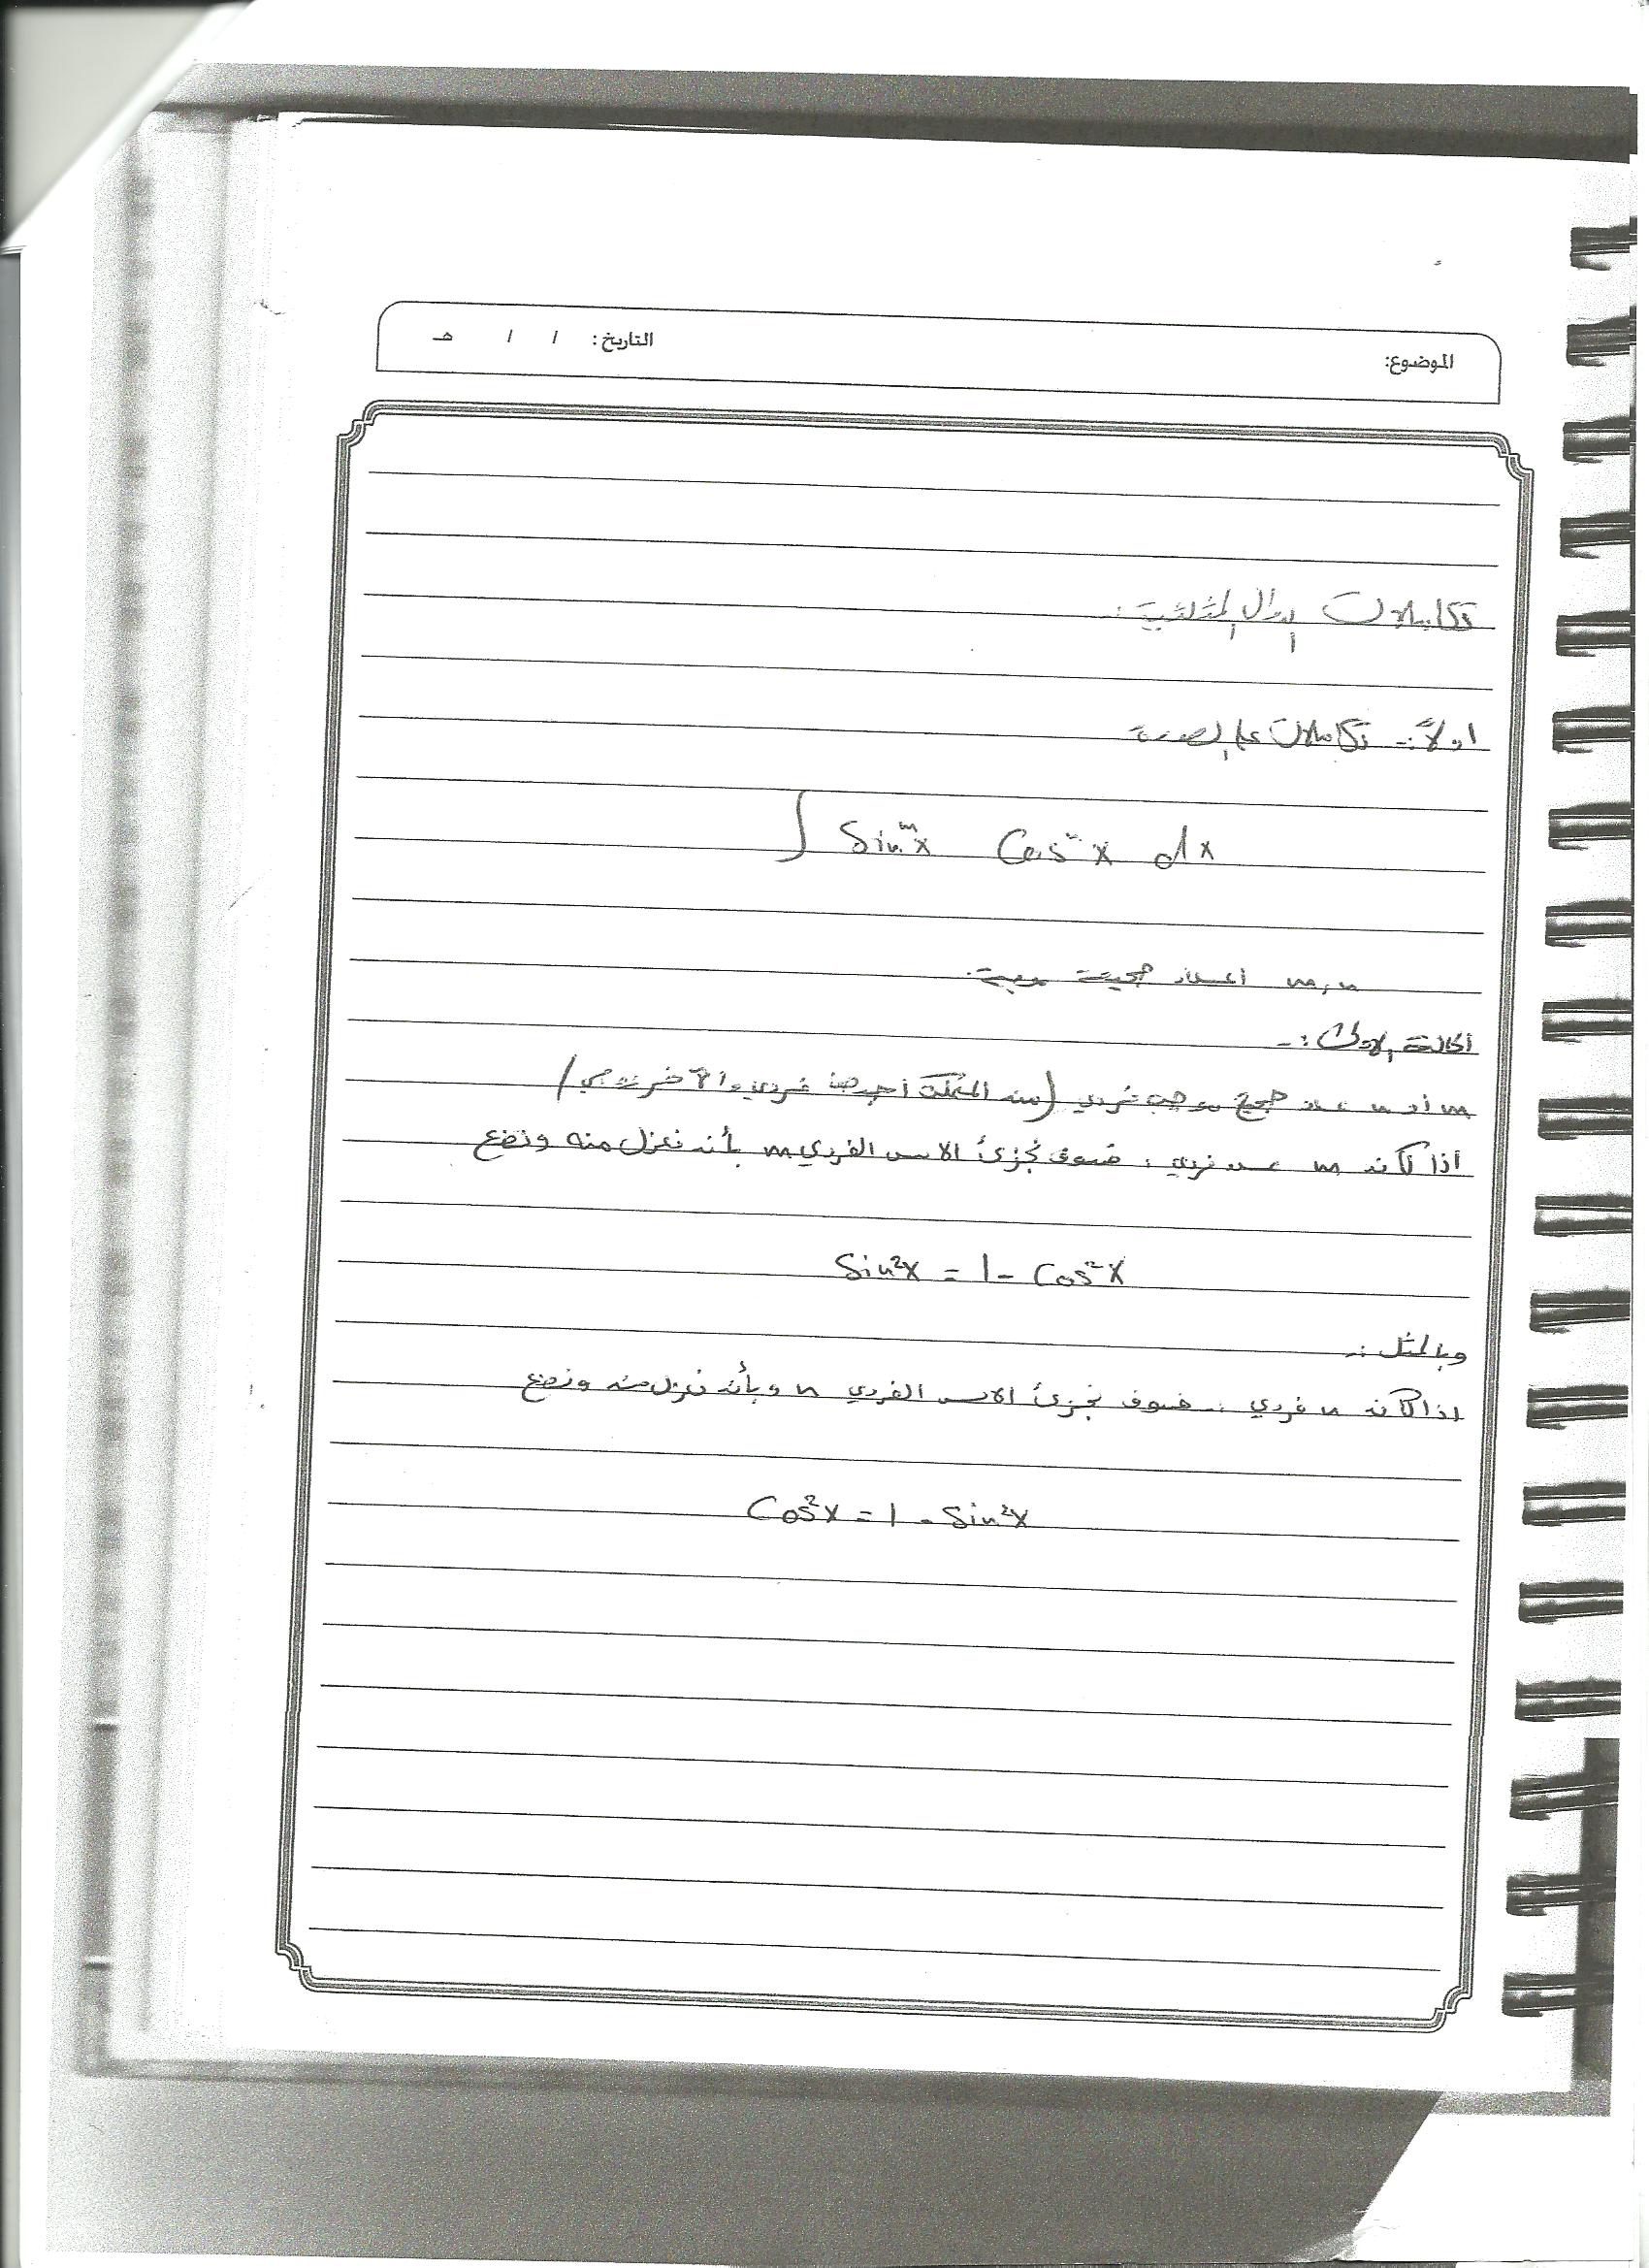 الموضوع: التاريخ: / / هـ
تكاملات الدوال المثلثية :
اولاً :- تكاملات على الصورة
∫ Sin^m x Cos^n x dx
m, n اعداد صحيحة موجبة.
الحالة الاولى :-
m أو n عدد صحيح موجب فردي (من الممكن احدهما فردي والآخر زوجي)
اذا كان m عدد فردي : فسوف نجزئ الاس الفردي m بأن نعزل منه ونضع
Sin²x = 1 - Cos²x
وبالمثل :-
اذا كان n فردي :- فسوف نجزئ الاس الفردي n وبأن نعزل منه ونضع
Cos²x = 1 - Sin²x